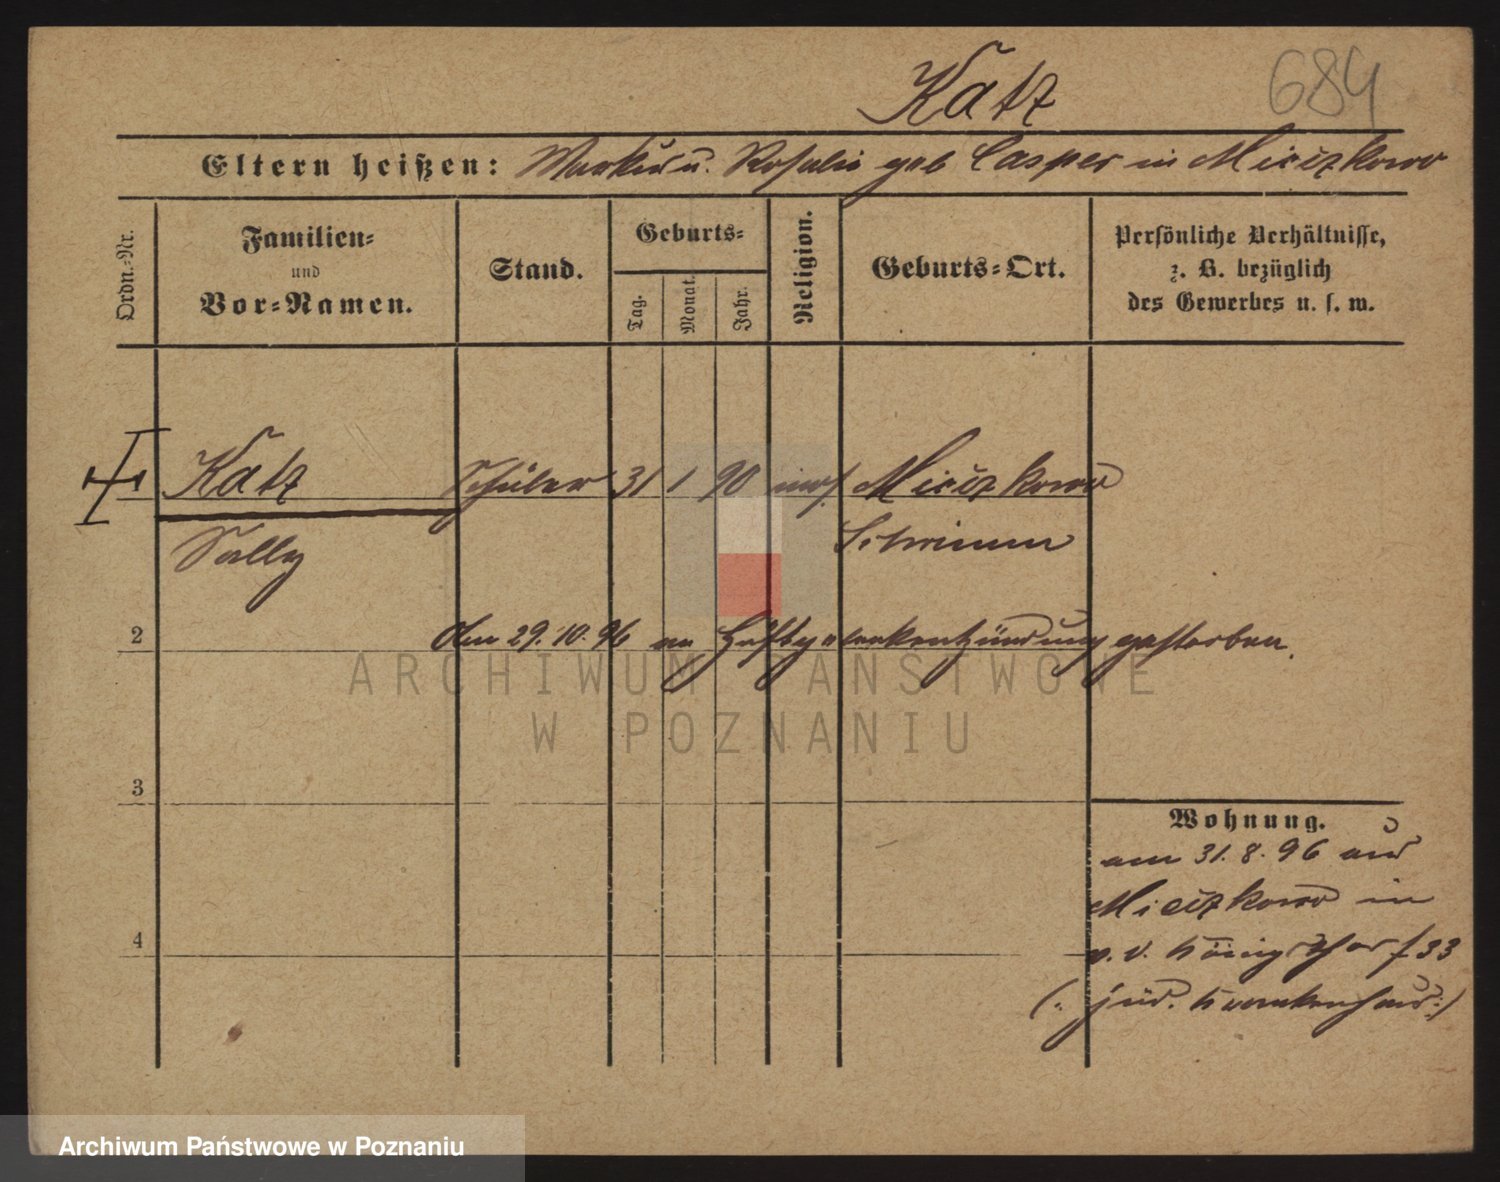 Katz 684
Eltern heißen: Markus u. Rosalie geb Casper in Mieczkowo
Ordn.-Nr.
Familien-
und
Vor-Namen.
Stand.
Geburts-
Tag.
Monat.
Jahr.
Religion.
Geburts-Ort.
Persönliche Verhältnisse,
z. B. bezüglich
des Gewerbes u. s. w.
Katz Schüler 31 1 90 mos. Mieczkowo
Sally Schrimm
2 Am 29. 10. 96 an Hüftgelenkentzündung gestorben.
ARCHIWUM PAŃSTWOWE
W POZNANIU
3
Wohnung.
am 31. 8. 96 aus
Mieczkowo in
4 v. d. Königsthor f. 33
(: jüd. Krankenhaus :)
Archiwum Państwowe w Poznaniu